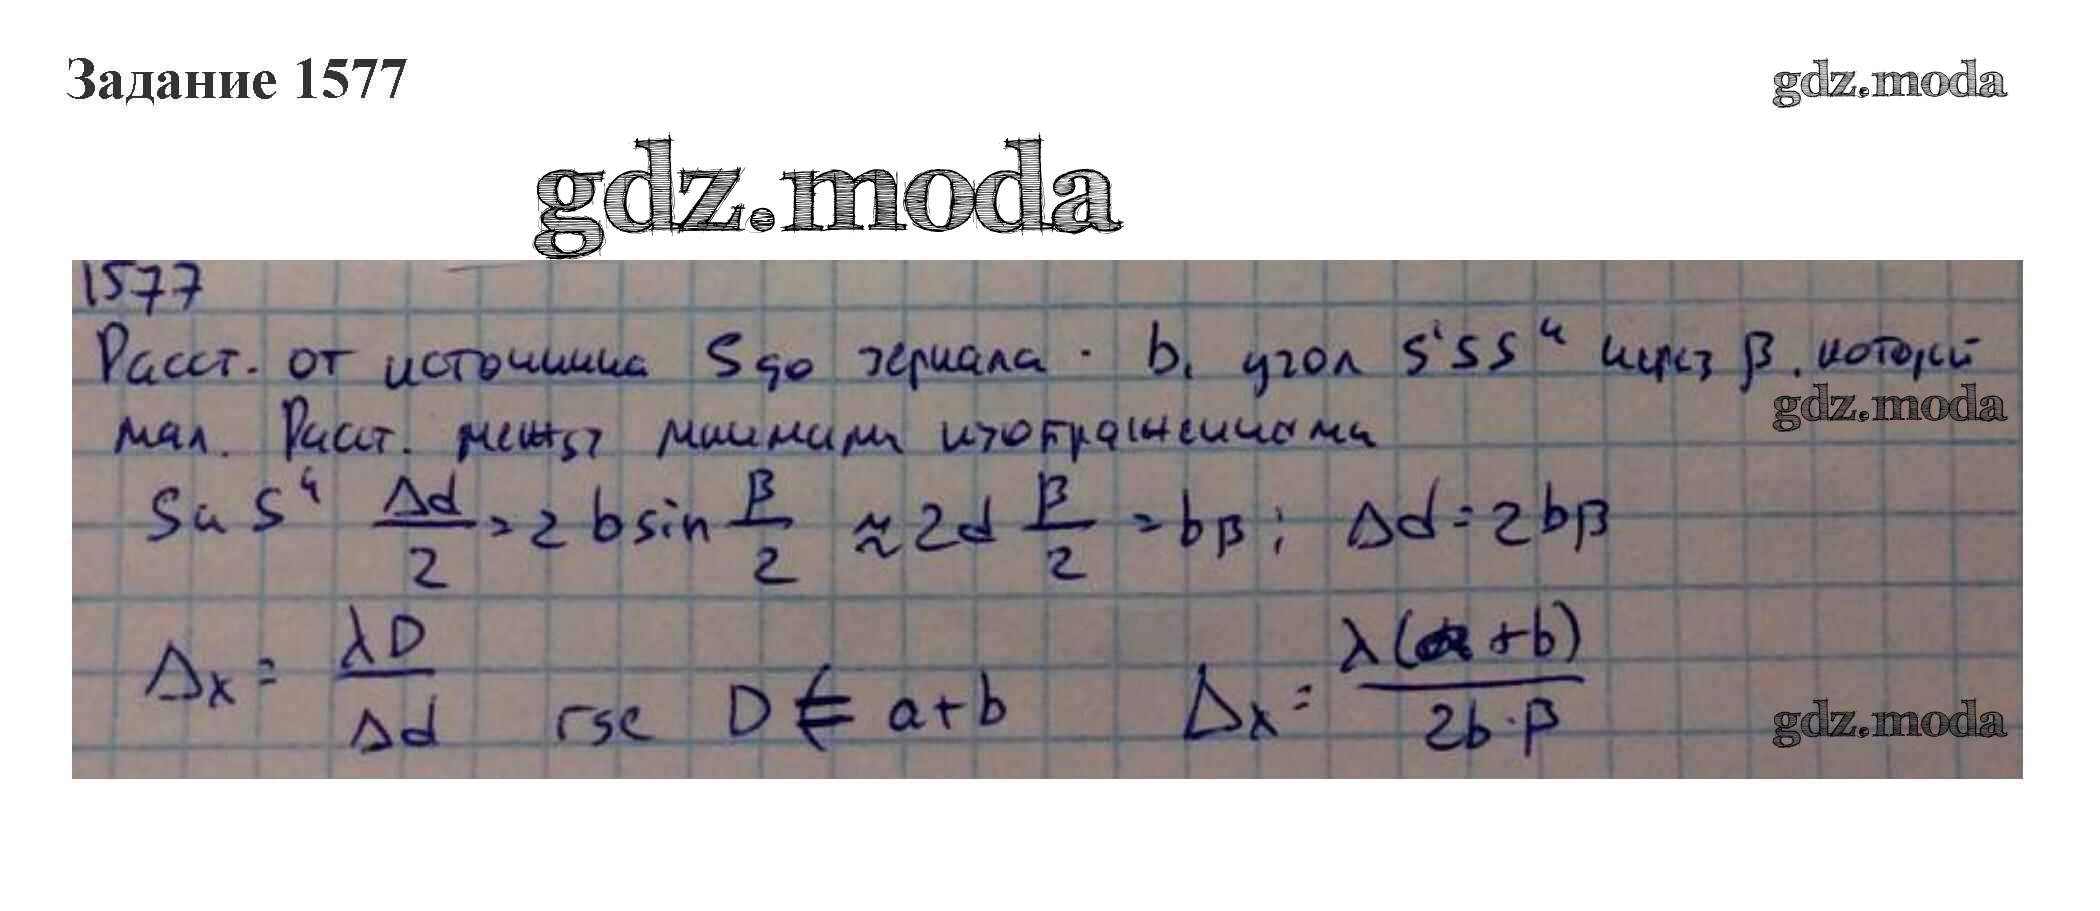 Задание 1577
gdz.moda
gdz.moda
1577
Расст. от источника S до зеркала - b, угол S'SS" через β, который
gdz.moda
мал. Расст. между мнимыми изображениями
S и S" Δd/2 = 2 b sin β/2 ≈ 2d β/2 = bβ; Δd = 2bβ
Δx = λD/Δd где D = a+b Δx = λ(a+b)/2b·β
gdz.moda